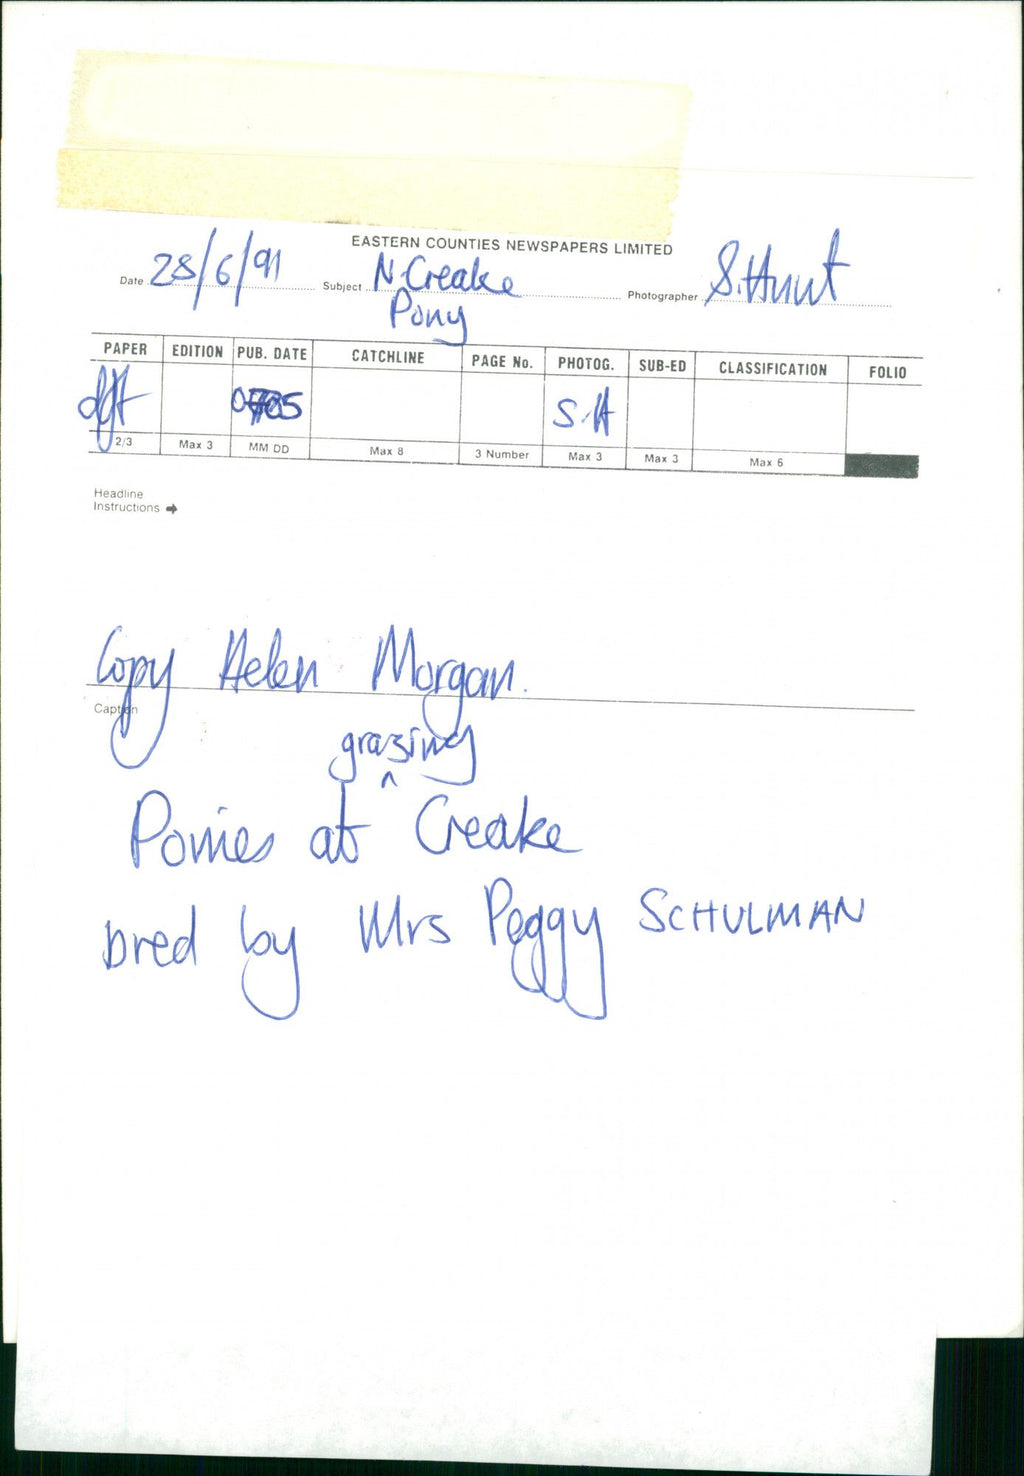 EASTERN COUNTIES NEWSPAPERS LIMITED
Date 28/6/91 Subject N. Creake Photographer S. Hunt
Pony
PAPER EDITION PUB. DATE CATCHLINE PAGE No. PHOTOG. SUB-ED CLASSIFICATION FOLIO
dft S.H
2/3 Max 3 MM DD Max 8 3 Number Max 3 Max 3 Max 6
Headline
Instructions
Copy Helen Morgan.
Caption
grazing
Ponies at ^ Creake
bred by Mrs Peggy SCHULMAN